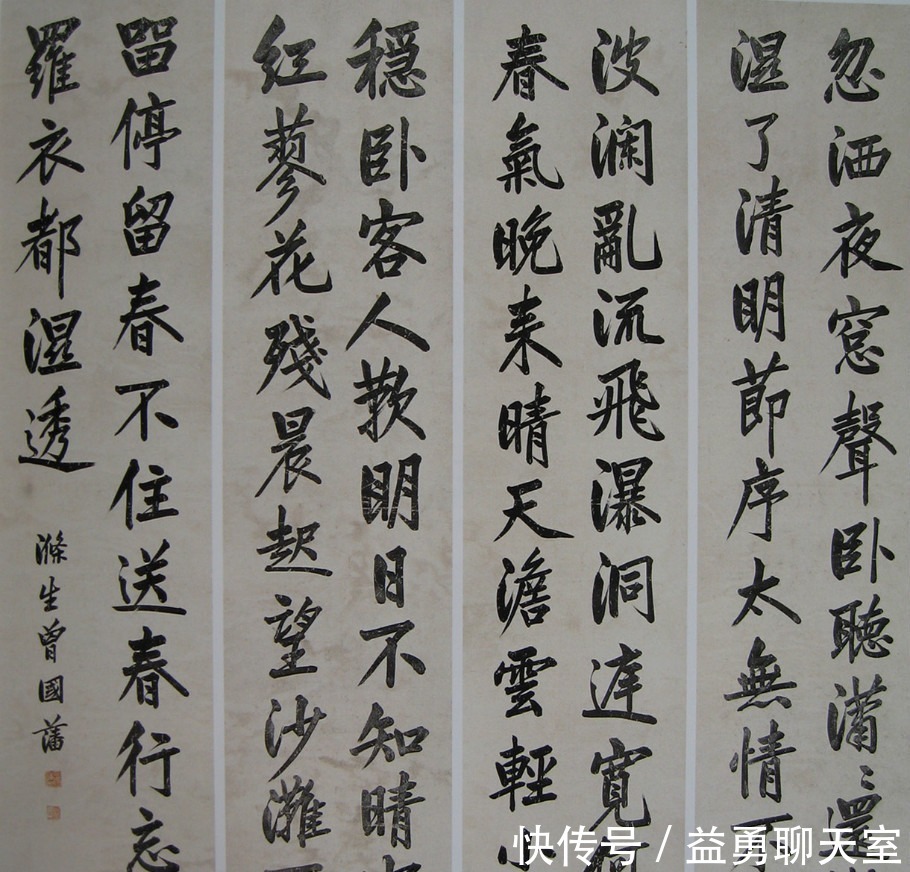 忽洒夜窓聲卧聽潚〻還
湿了清明節序太無情可
波瀾亂流飛瀑洞達寬
春氣晚来晴天澹雲輕小
穏卧客人欺明日不知晴
红蓼花殘晨起望沙灘一
畱停留春不住送春行忘
羅衣都濕透
滌生曾國藩
快传号 / 益勇聊天室